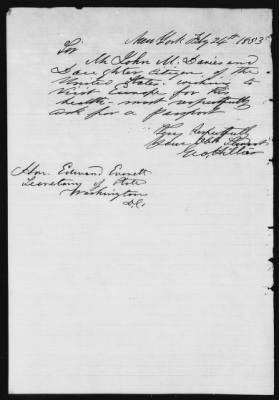 New York Feby 24th 1853
Sir
Mr John M. Davies and
Daughter Citizens of the
United States. wishing to
visit Europe for his
health - most respectfully
ask for a passport
Very Respectfully
Your Obt Servant
Hon. Edward Everett
Secretary of State
Washington
D.C.